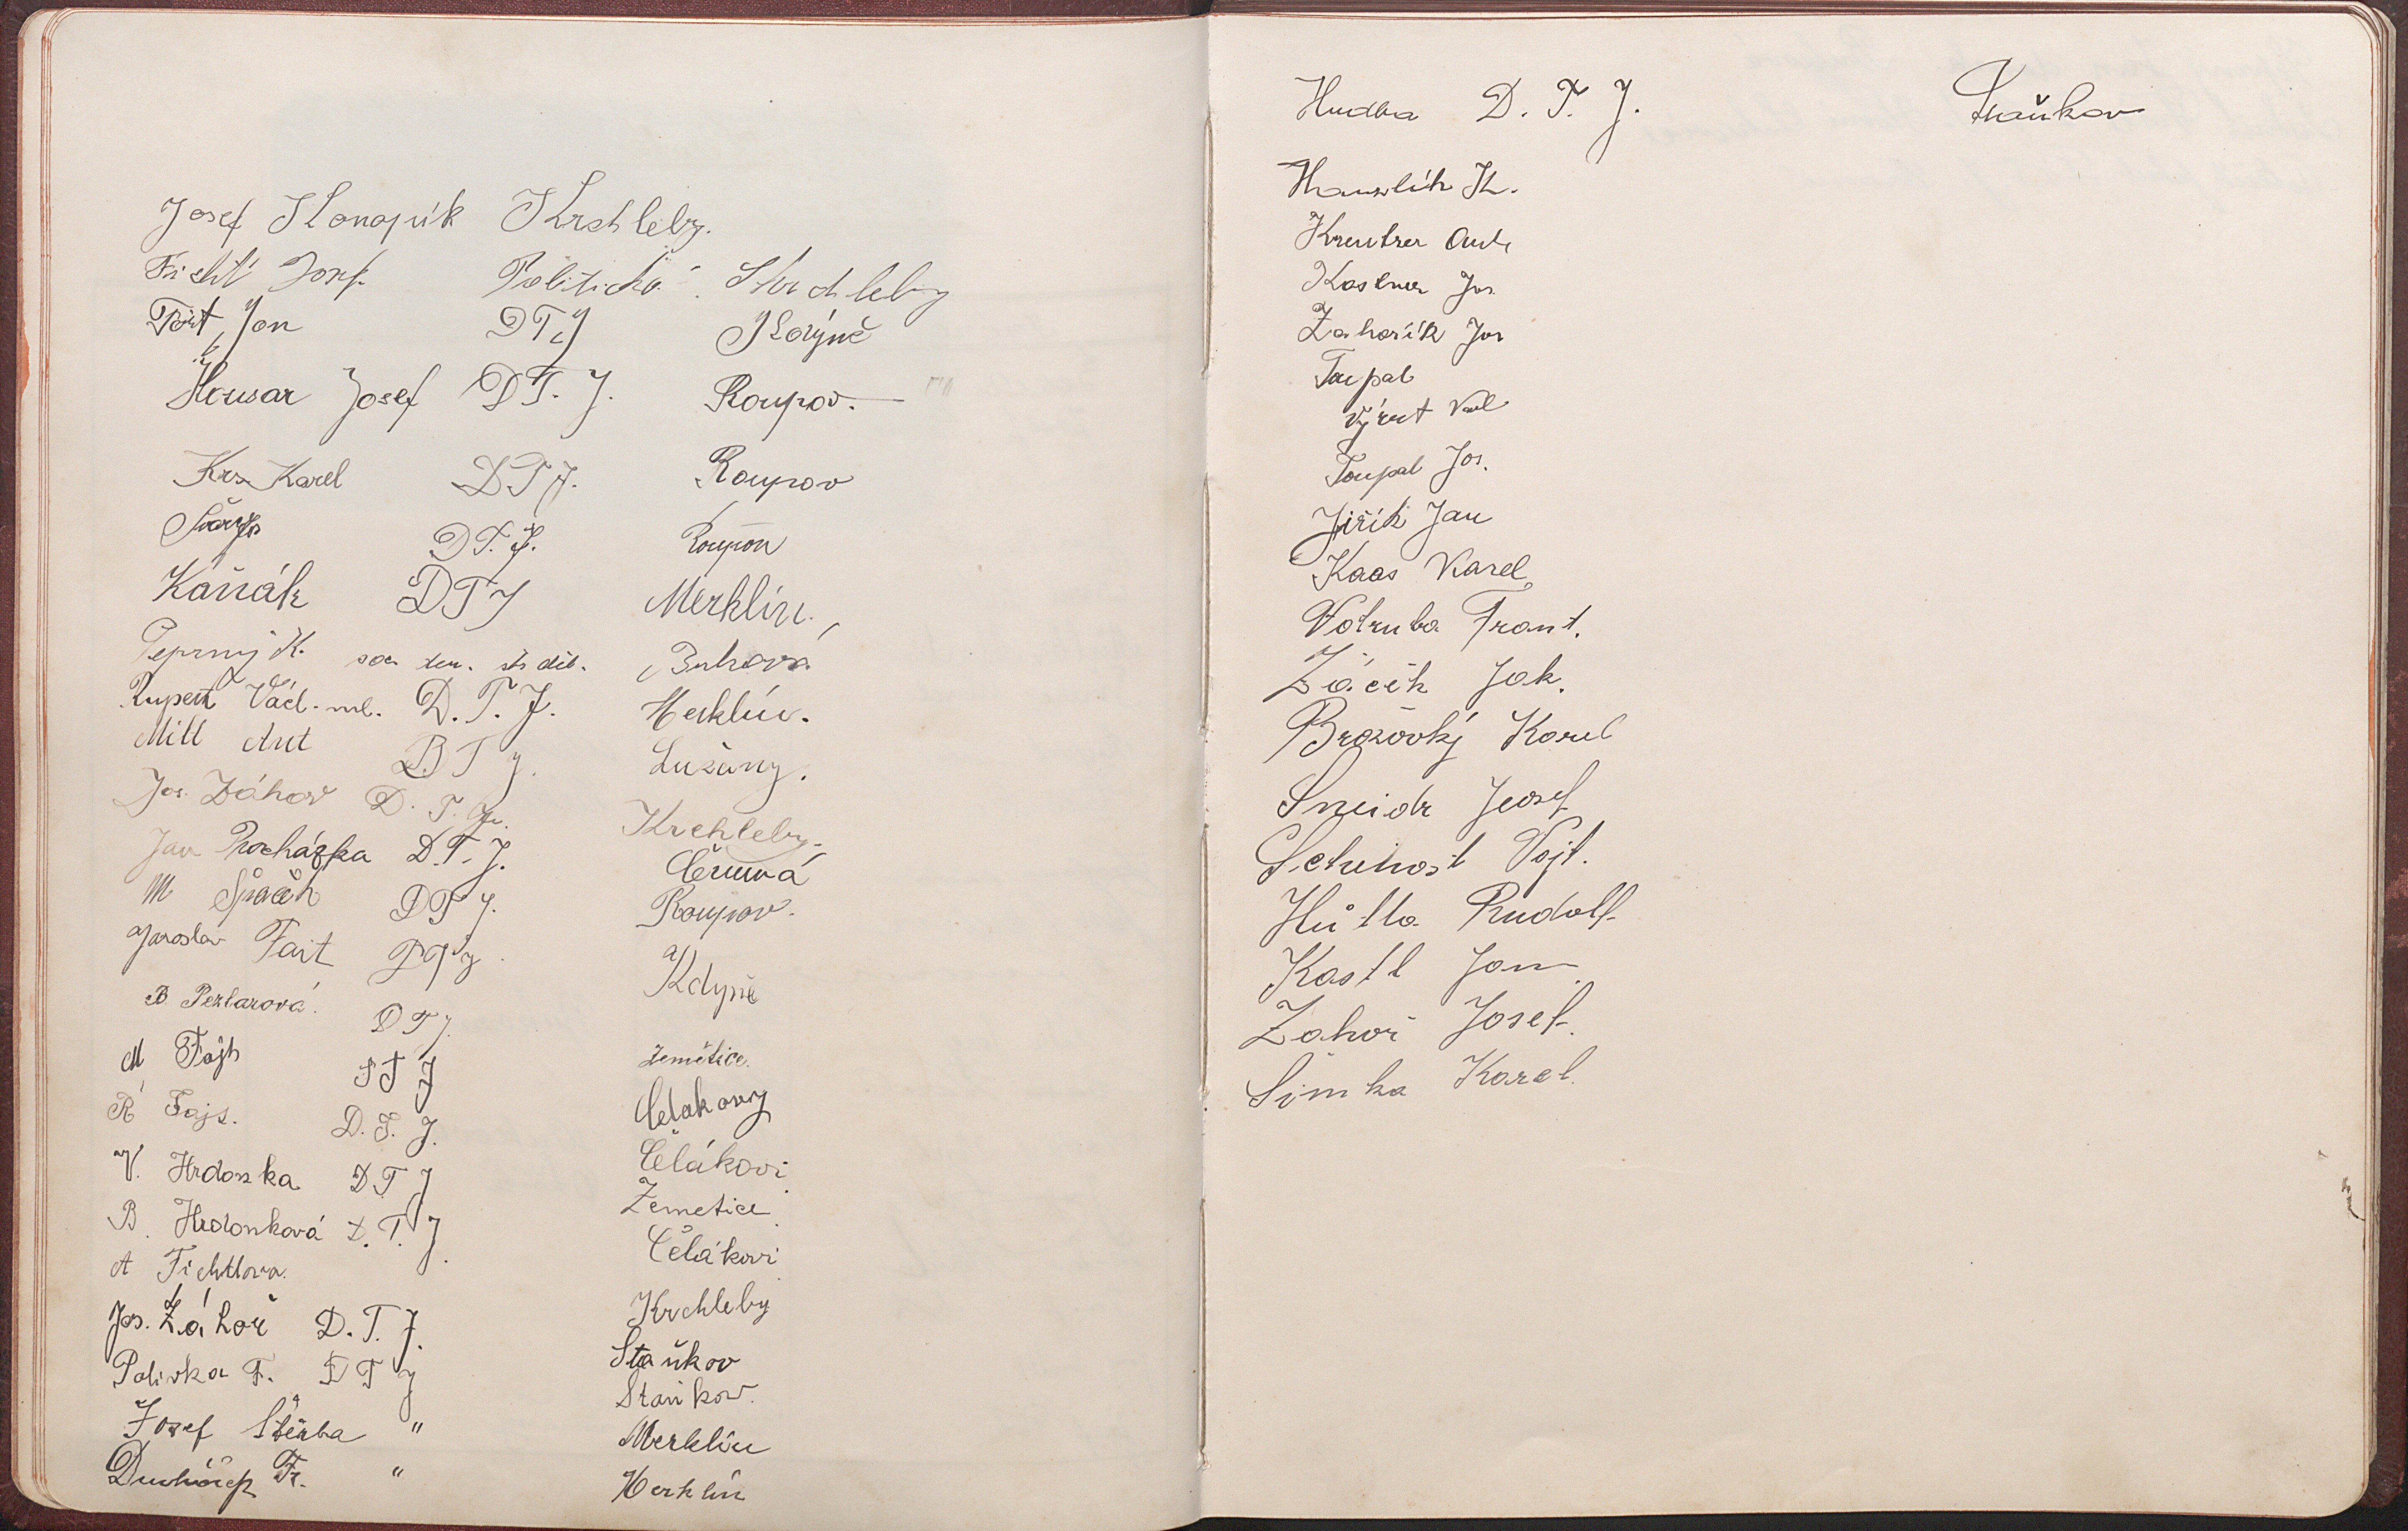 Josef Konopík Krchleby.
Fichtl Josef. Politická Krchleby
Fait Jan DTJ Kdýně
Housar Josef D.T.J. Roupov.
Krs Karel D.T.J. Roupov
D.T.J. Roupov
Kaňák DTJ Merklín.
Peprný K. soc. dem. Buková
Rupert Václ. ml. D.T.J. Merklín.
Mill Ant D.T.J. Lužany.
Jos. Záhoř D.T.J. Krchleby.
Jan Procházka D.T.J. Černová
M Špaček DTJ. Roupov.
Jaroslav Fait DTJ Kdyně
B Pezlarová. DTJ. Zemětice.
M Fajt DTJ Čelakovy
R Fajs. D.T.J. Čelákovi
V. Hrdonka D.T.J Zemetice
B. Hrdonková D.T.J. Čelákovi
A Fichtlova. Krchleby
Jos. Záhoř D.T.J. Staňkov
Polivka F. DTJ Staňkov.
Josef Štěrba " Merklín
Fr. " Merklín
Hudba D.T.J. Staňkov
Hawlik
Kreutzer Ant.
Kastner Jos.
Zahořík Jos
Toupal
Výrut Václ
Toupal Jos.
Jiřík Jan
Kaas Karel.
Votruba Frant.
Žáček Jak.
Brožovký Karel
Šneidr Josef
Sctrnost Vojt.
Hútta Rudolf
Kastl Jan.
Zahoř Josef.
Šimka Karel.